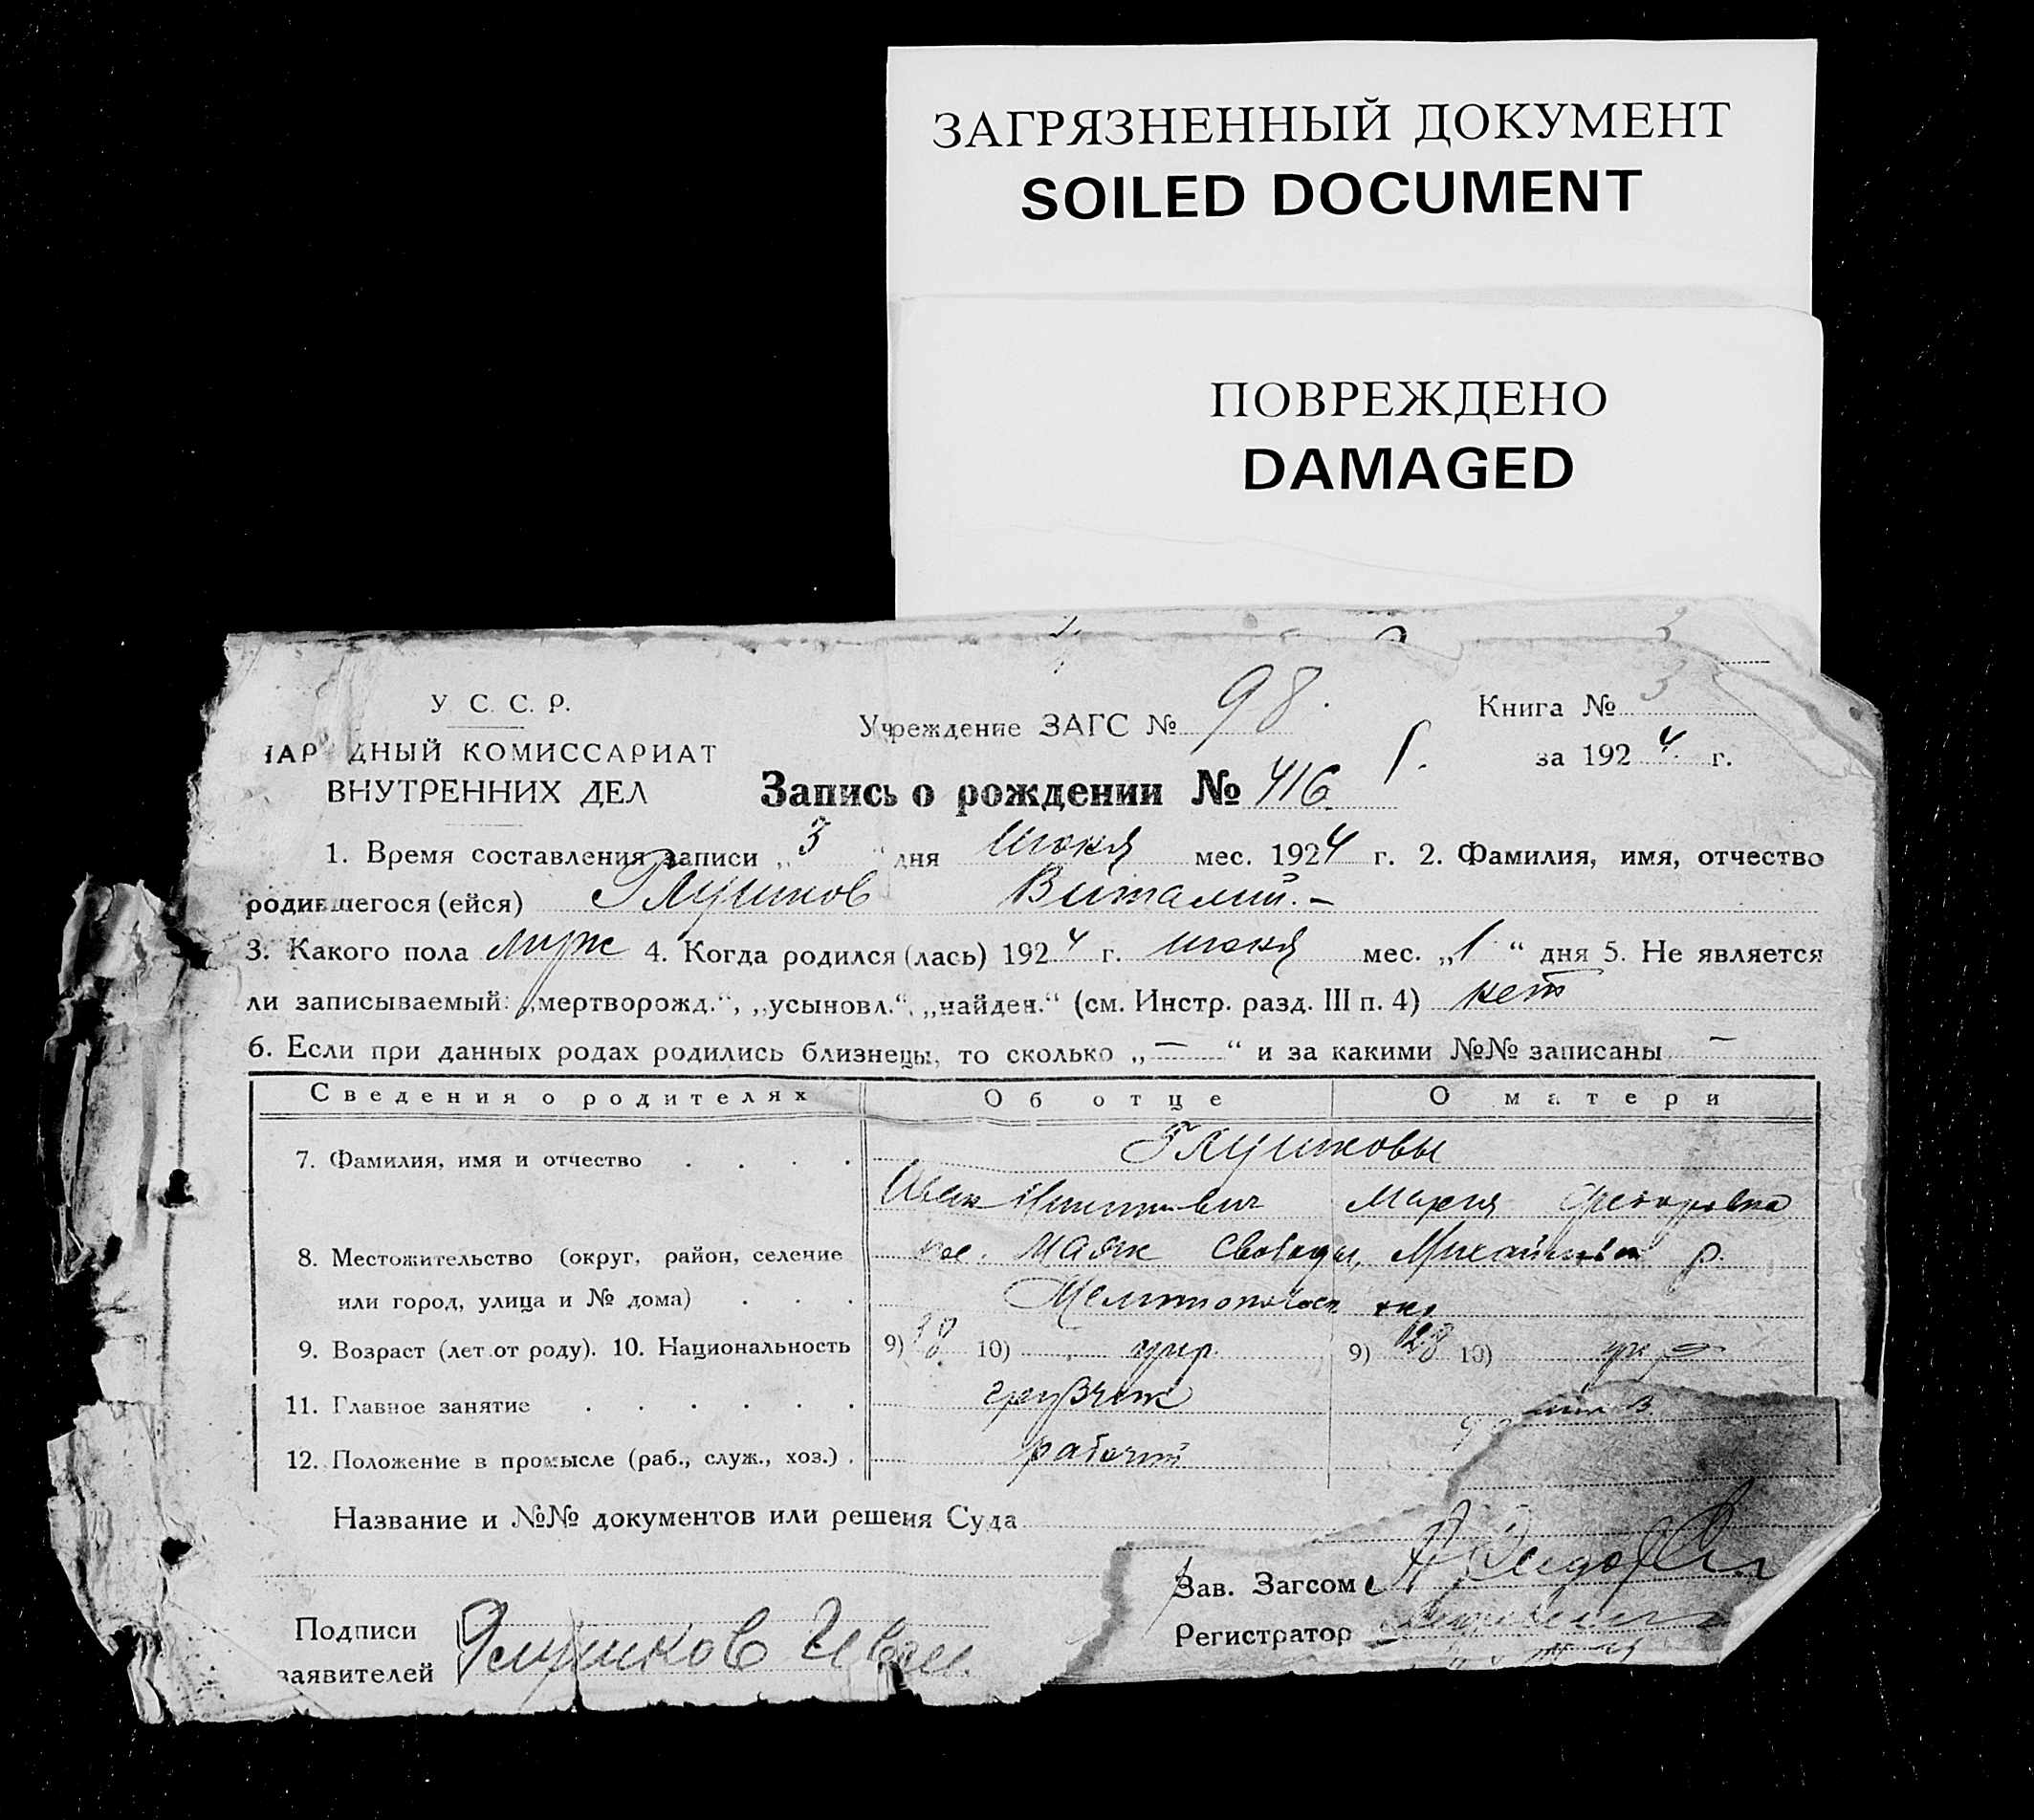 ЗАГРЯЗНЕННЫЙ ДОКУМЕНТ
SOILED DOCUMENT
ПОВРЕЖДЕНО
DAMAGED
У. С. С. Р.
ДНЫЙ КОМИССАРИАТ
ВНУТРЕННИХ ДЕЛ
Учреждение ЗАГС № 98.
Книга № 3
за 1924 г.
Запись о рождении № 416.
1. Время составления записи „3“ дня июня мес. 1924 г. 2. Фамилия, имя, отчество
родившегося (ейся) Глушков Виталий. –
3. Какого пола муж 4. Когда родился (лась) 1924 г. июня мес. „1“ дня 5. Не является
ли записываемый: „мертворожд.“, „усыновл.“, „найден.“ (см. Инстр. разд. III п. 4) нет
6. Если при данных родах родились близнецы, то сколько „—“ и за какими №№ записаны —
Сведения о родителях Об отце О матери
7. Фамилия, имя и отчество . . . . Глушковы
Иван Мария Федоровна
8. Местожительство (округ, район, селение пос. Маяк Свободы, р.
или город, улица и № дома) . . . Мелитопольск окр.
9. Возраст (лет от роду). 10. Национальность 9) 10) укр. 9) 28 10) укр
11. Главное занятие . . . . . . грузчик
12. Положение в промысле (раб., служ., хоз.) . рабочий
Название и №№ документов или решеия Суда
Зав. Загсом
Подписи
Регистратор
заявителей Глушков Иван.